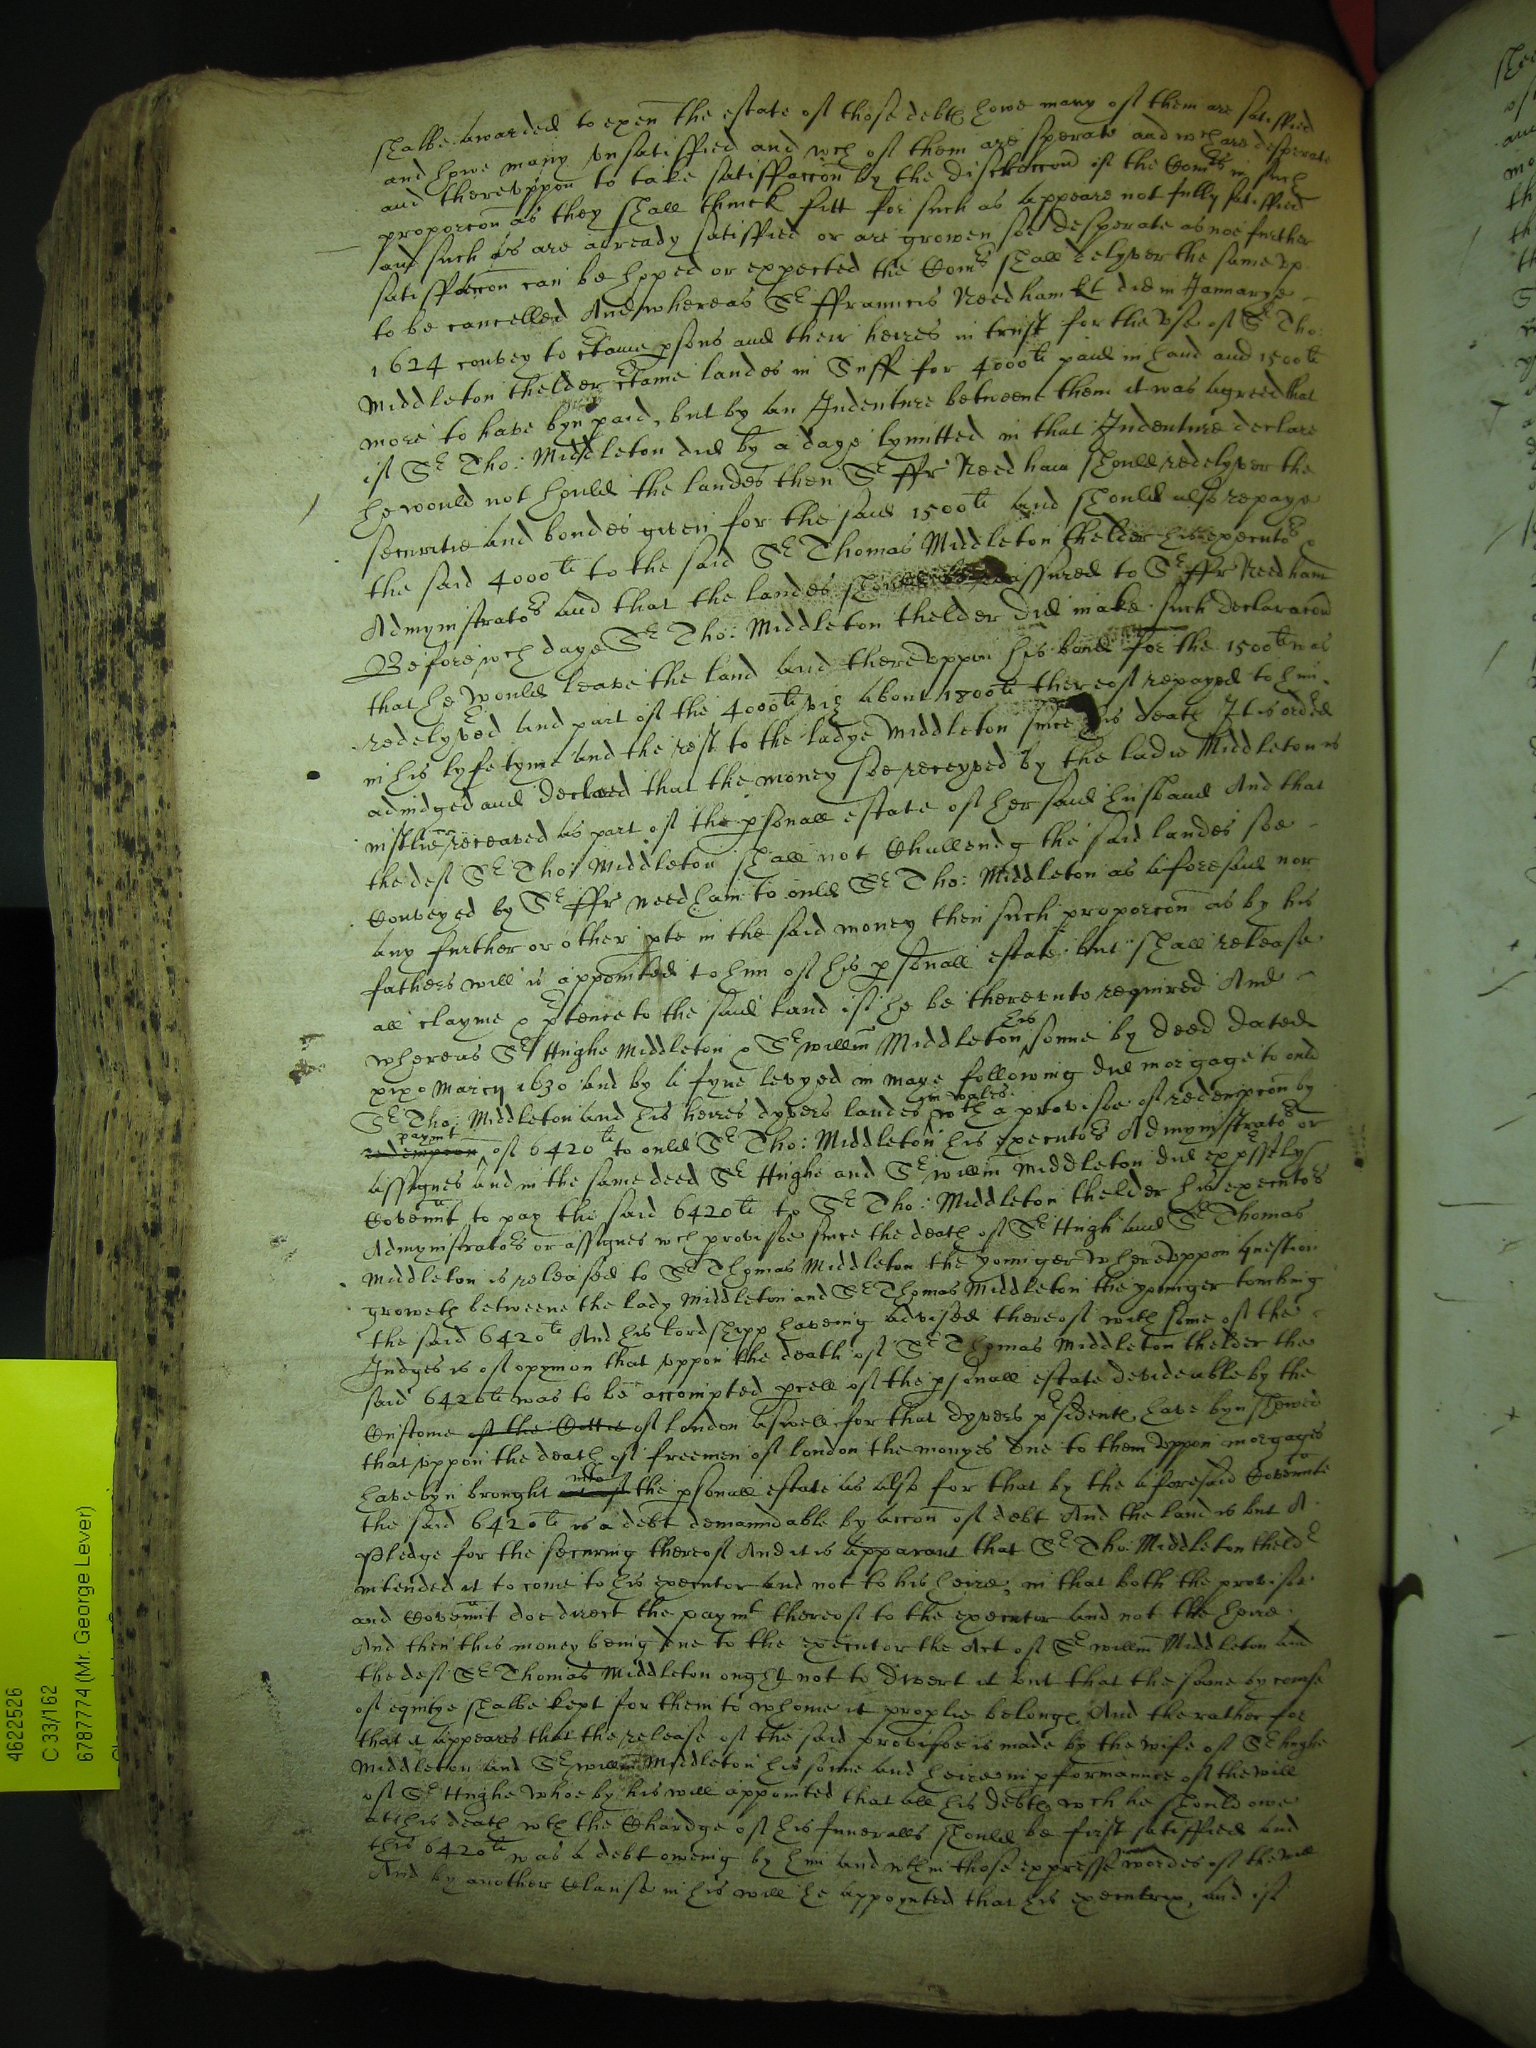 shalbe awarded to exen the estate of those debts howe many of them are satisfied
and howe many vnsatisfied and wch of them are sperate and wch are desperate
and therevppon to take satisfaccon by the discreccon of the Comrs in such
proporcon as they shall thinck fitt for such as appeare not fully satisfied
and such as are already satisfied or are growen soe desperate as noe further
satisfaccon can be hoped or expected the Comrs shall delyver the same vp
to be cancelled And whereas Sr ffrauncis Needham kt did in January
1624 convey to ctaine psons and their heires in trust for the vse of Sr Tho:
Middleton thelder ctaine landes in Suff for 4000li paid in hand and 1500li
more to have byn paid, but by an Indenture betweene them it was agreed that
if Sr Tho: Middleton did by a daye lymitted in that Indenture declare
he would not hould the landes then Sr ffr Needham should redelyver the
securitie and bondes given for the said 1500li and should also repaye
the said 4000li to the said Sr Thomas Middleton thelder his executors &
Admynistrators and that the landes should be reassured to Sr ffr Needham
Before wch daye Sr Tho: Middleton thelder did make such declaracon
that he would leave the land and therevppon his band for the 1500li was
redelyved and part of the 4000li viz about 1800li thereof repayed to him
in his lyfe tyme and the rest to the ladye Middleton since his death It is ordered
adiudged and declared that the money soe receyved by the ladie Middleton is
iustlie receaved as part of the psonall estate of her said husband And that
the deft Sr Tho: Middleton shall not Challendg the said landes soe
Conveyed by Sr ffr Needham to ould Sr Tho: Middleton as aforesaid nor
any further or other pte in the said money then such proporcon as by his
fathers will is appointed to him of his psonall estate but shall release
all clayme & ptence to the said land if he be therevnto required And
whereas Sr Hughe Middleton & Sr willm Middleton his sonne by deed dated
xixo Marcij 1630 and by a fyne levyed in Maye following did morgage to ould
Sr Tho: Middleton and his heires dyvers landes in wales wth a provisoe of redempcon by
redempcon paymt of 6420li to ould Sr Tho: Middleton his executors Admynistrators or
assignes and in the same deed Sr Hughe and Sr willm Middleton did expressely
Covennt to pay the said 6420li to Sr Tho: Middleton thelder his executors
Admynistrators or assignes wch provisoe since the death of Sr Hugh and Sr Thomas
Middleton is released to Sr Thomas Middleton the younger wherevppon question
groweth betweene the lady Middleton and Sr Thomas Middleton the younger touching
the said 6420li And his lordshipp haveing advised thereof with some of the
Judges is of opynion that vppon the death of Sr Thomas Middleton thelder the
said 6420li was to be accompted pcell of the psonall estate devideable by the
Custome of the Cittie of london aswell for that dyvers psidents have byn shewed
that vppon the death of freemen of london the monyes due to them vppon morgages
have byn brought into the psonall estate as also for that by the aforesaid Covennte
the said 6420li is a debt demaundable by accon of debt And the land is but A
Pledge for the securing thereof And it is apparant that Sr Tho: Middleton theldr
intended it to come to his executor and not to his heire, in that both the provisoe
and Covennt doe direct the paymt thereof to the executor and not the heire
And then this money being due to the executor the Act of Sr willm Middleton and
the deft Sr Thomas Middleton ought not to divert it but that the same by course
of equitye shalbe kept for them to whome it proplie belongs And the rather for
that it appeares that the release of the said provisoe is made by the wife of Sr Hughe
Middleton and Sr willm Middleton his sonne and heire in pformance of the will
of Sr Hughe whoe by his will appointed that all his debts wch he should owe
att his death wth the Chardge of his funeralls should be first satisfied and
this 6420li was a debt oweing by him and wthin those expresse wordes of the will
And by another Clause in his will he appoynted that his executrix, and if
4622526
C 33/162
6787774 (Mr. George Lever)